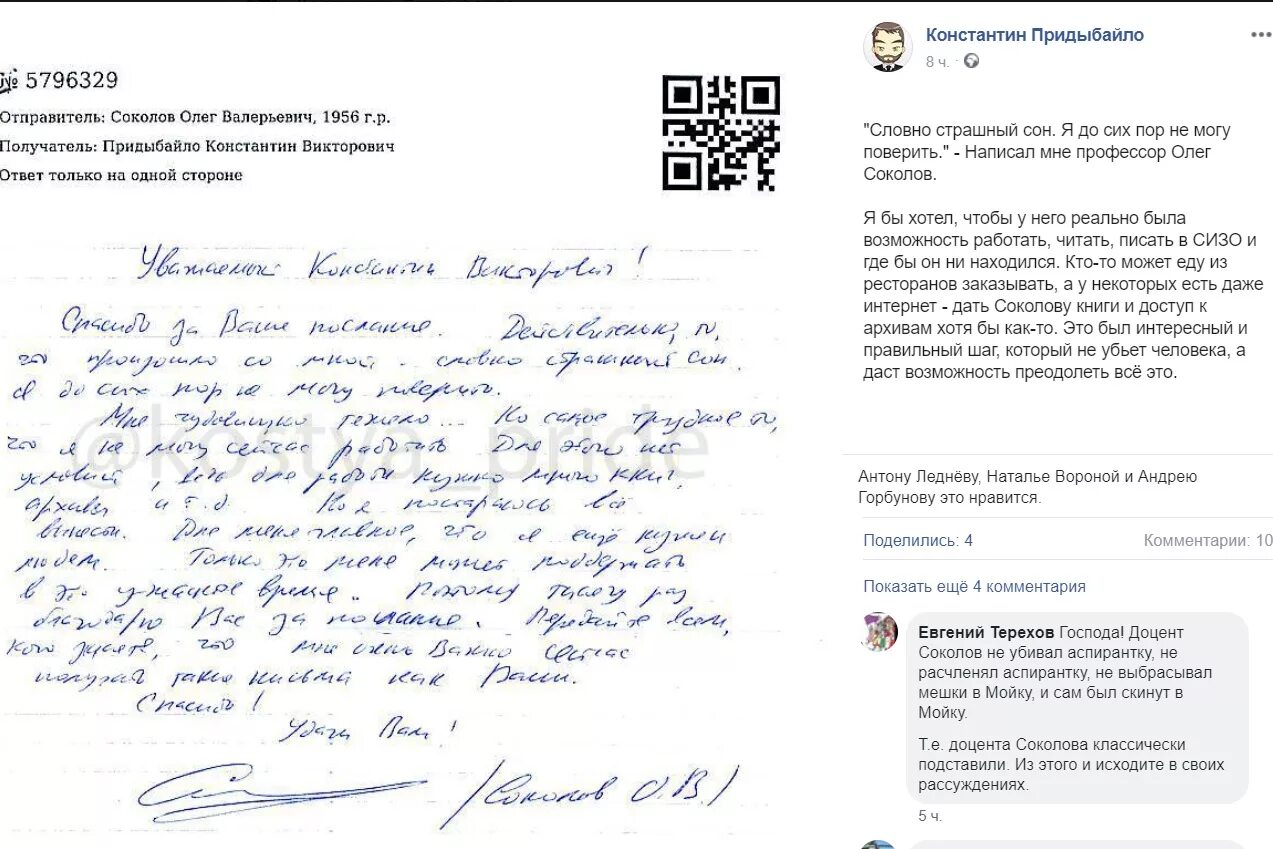 № 5796329
Отправитель: Соколов Олег Валерьевич, 1956 г.р.
Получатель: Придыбайло Константин Викторович
Ответ только на одной стороне
Уважаемый Константин Викторович!
Спасибо за Ваше послание. Действительно, то,
что произошло со мной - словно страшный сон.
Я до сих пор не могу поверить.
Мне чудовищно тяжело... Но самое трудное то,
что я не могу сейчас работать. Для этого нет
условий, ведь для работы нужно много книг,
архивы и т.д. Но я постараюсь всё
вынести. Для меня главное, что я ещё нужен
людям. Только это меня может поддержать
в это ужасное время. Поэтому тысячу раз
благодарю Вас за послание. Передайте всем,
кого знаете, что мне очень важно сейчас
получать такие письма как Ваши.
Спасибо!
Удачи Вам!
/Соколов О.В./
@kostya_pride
Константин Придыбайло
8 ч.
"Словно страшный сон. Я до сих пор не могу
поверить." - Написал мне профессор Олег
Соколов.
Я бы хотел, чтобы у него реально была
возможность работать, читать, писать в СИЗО и
где бы он ни находился. Кто-то может еду из
ресторанов заказывать, а у некоторых есть даже
интернет - дать Соколову книги и доступ к
архивам хотя бы как-то. Это был интересный и
правильный шаг, который не убьет человека, а
даст возможность преодолеть всё это.
Антону Леднёву, Наталье Вороной и Андрею
Горбунову это нравится.
Поделились: 4
Комментарии: 10
Показать ещё 4 комментария
Евгений Терехов Господа! Доцент
Соколов не убивал аспирантку, не
расчленял аспирантку, не выбрасывал
мешки в Мойку, и сам был скинут в
Мойку.
Т.е. доцента Соколова классически
подставили. Из этого и исходите в своих
рассуждениях.
5 ч.